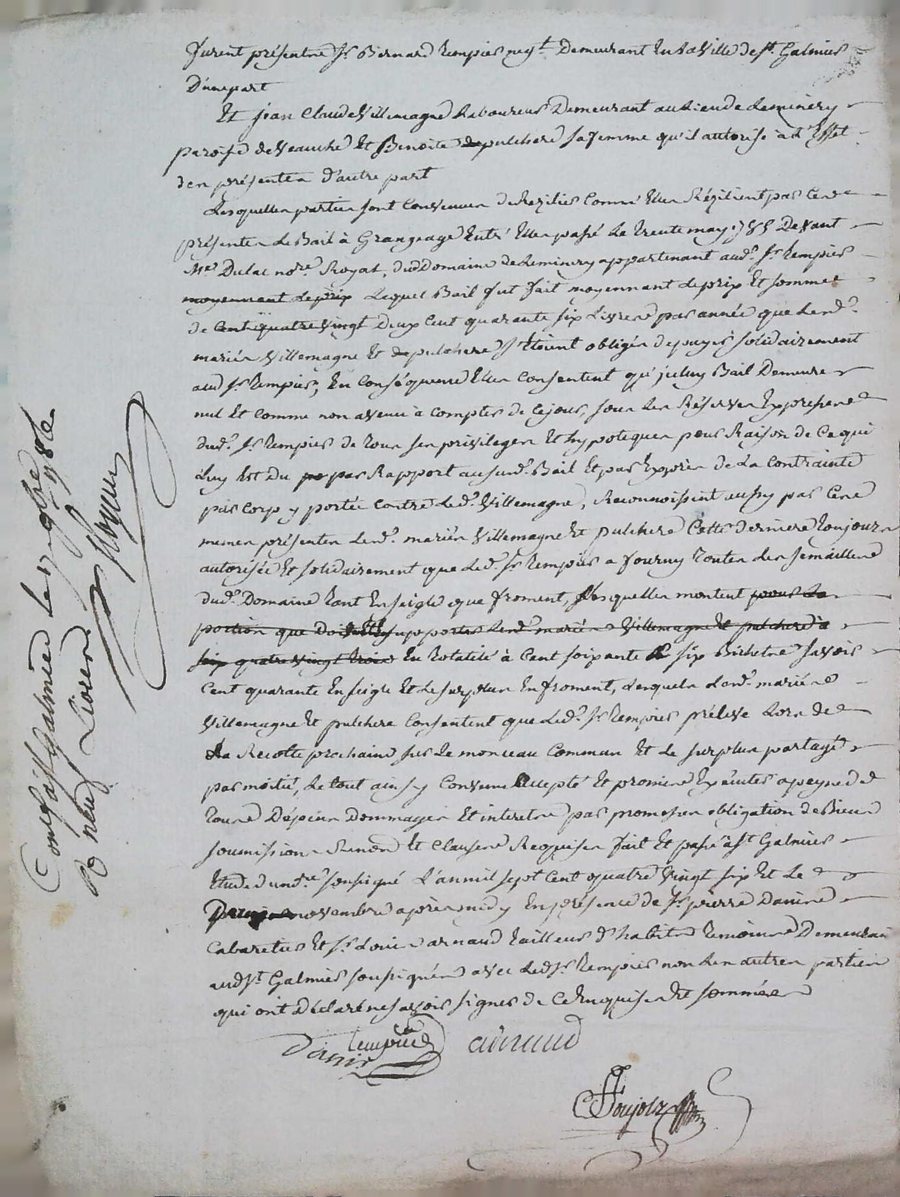 furent présentne Sr. Bernard Tempier negt. Demeurant En la Ville de St. Galmier
D'unepart
Et jean Claude Villemagne Laboureur Demeurant au Lieu de Leminery
paroisse de Veauche Et Benoite depulchere sa femme qu'il autorise à L'Effet
den présenten d'autre part
Lesquellen partien sont Convenuen de Rezilier Comme Ellen Rézilient par Cen
présenten Le Bail à Grangeage Entr' Ellen passé Le trente may 1785 Devant
Me. Dulac nore. Royal, dud. Domaine de Leminery appartenant aud. Sr. Tempier
moyennant le prix Lequel Bail fut fait moyennant le prix Et somme
de Cent quatre Vingt Deux Cent quarante six Livren par année que Lend.
marién Villemagne Et depulchere s'étoient obligén de payer solidairement
aud. Sr. Tempier, En Conséquence Ellen Consentent qu'jceluy Bail Demeure
nul Et Comme non avenu à Compter de Cejour, soun Len Réserven Expressen
dud. Sr. Tempier de Toun sen privilegen Et hypotequen pour Raison de Ce qui
Luy Est Du par Rapport au sund. Bail Et par Exprèn de La Contrainte
par Corp y portée Contre Led. Villemagne, Reconnoissent aussy par Cen
mêmen présenten Lend. marién Villemagne Et pulchere Cette derniere Toujourn
autorisée Et solidairement que Led. Sr. Tempier a fourny Touten Len semaillen
dud. Domaine Tant En seigle que froment, Lesquellen montent pour La
portion que doivent supporter Lend. marién Villemagne Et pulchere à
six quatre Vingt Troin En Totalité à Cent soixante six Bichetn savoir
Cent quarante En seigle Et Le surplun En froment, Lesqueln Lend. marién
Villemagne Et pulchere Consentent que Led. Sr. Tempier préleve Lorn de
La Recolte prochaine sur Le monceau Commun Et Le surplun partagé
par moitié, Le tout ainsy Convenu Accepté Et promin Exécuter a peyne de
Toun Dépenn Dommagen Et interetn par promessen obligation de Bienn
soumission Renon. Et Clausen Requisen fait Et passé à St. Galmier
Etude du nore. soussigné L'an mil sept Cent quatre Vingt six Et Le
novembre aprèn midy En présence de Sr. pierre Danine
Cabaretier Et Sr. Louin arnaud Tailleur d'habitn Temoinn Demeurant
aud. St. Galmier soussignén avec Led. Sr. Tempier non Len autren partien
qui ont Déclaré ne savoir signer de Ce Enquisen Et sommén
Tempier
Danine
arnaud
Toujour
Controllé à St. Galmier Le 9bre 1786
R neuf Livren